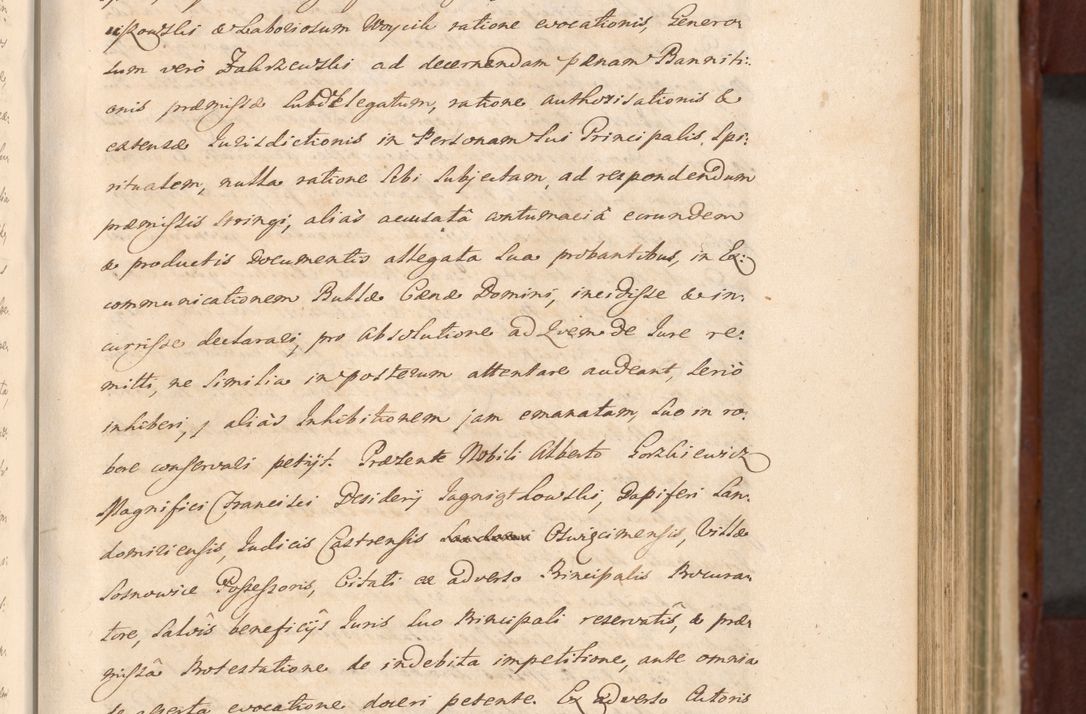 Kowski & Laboriosum Woycik ratione evocationis, Genero-
sum verò Zakrzewski ad decernendam pænam Banniti-
onis præmissæ Subdelegatum, ratione authorisationis &
extensæ Iurisdictionis in Personam Sui Principalis, Spi:
ritualem, nulla ratione Sibi Subjectam, ad respondendum
præmissis stringi, aliàs accusatâ contumaciâ eorundem
& productis Documentis allegata Sua probantibus, in Ex:
communicationem Bullæ Cænæ Domini, incidisse & in:
currisse declarari, pro absolutione ad Quem de Iure re:
mitti, ne Similia in posterum attentare audeant, Seriò
inhiberi, aliàs Inhibitionem jam emanatam, Suo in ro:
bore conservari petijt. Præsente Nobili Alberto Gorzkiewicz
Magnifici Francisci Desiderij Jagnigtkowski, Dapiferi San-
domiriensis, Iudicis Castrensis Oswięcimensis, Villæ
Sosnowice Possessoris, Citati ex adverso Principalis Procura-
tore, Salvis beneficijs Iuris Suo Principali reservatis, & præ-
missâ Protestatione de indebita impetitione, ante omnia
de asserta evocatione doceri petente. Ex adverso Actoris